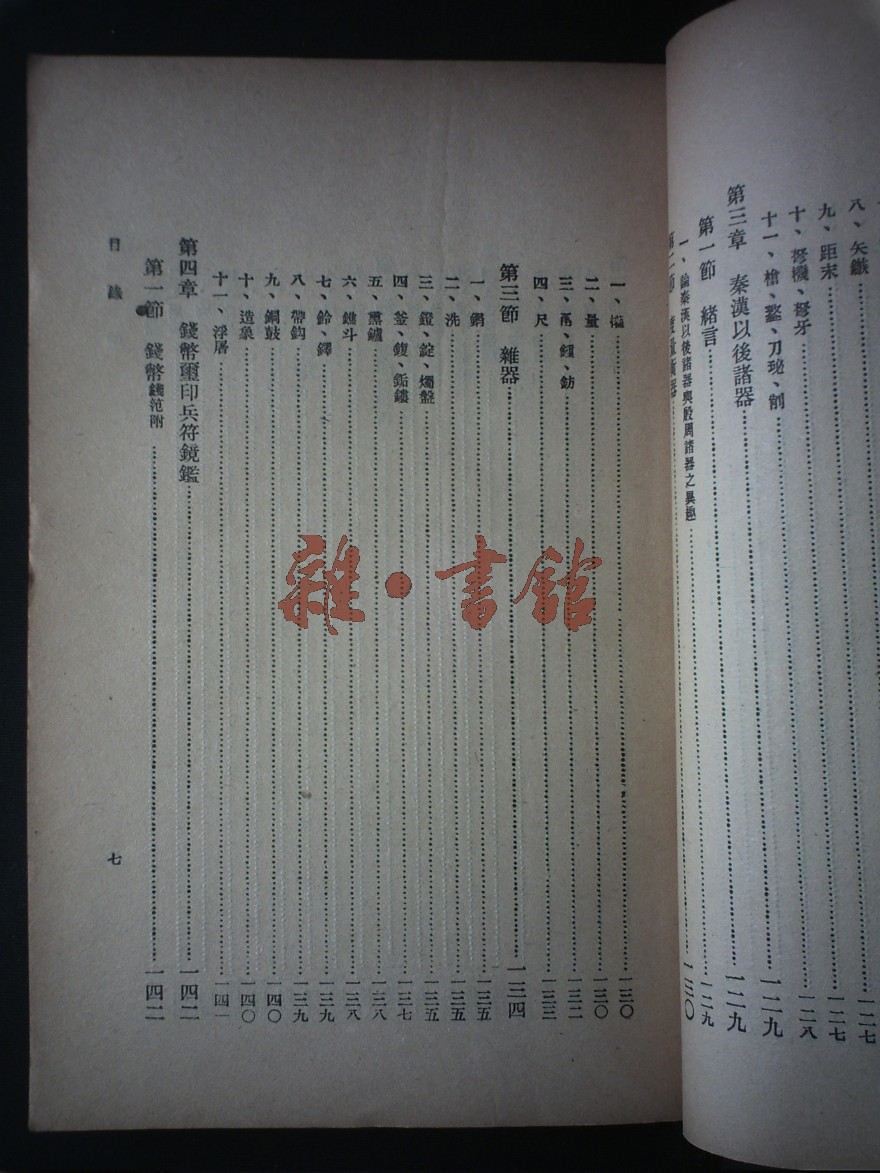 八、矢鏃……一二七
九、距末……一二七
十、弩機、弩牙……一二八
十一、槍、鐓、刀珌、削……一二九
第三章 秦漢以後諸器……一二九
第一節 緒言……一二九
一、論秦漢以後諸器與殷周諸器之異趣
第二節 度量衡器……一三〇
一、權……一三〇
二、量……一三〇
三、甬、鍾、鈁……一三二
四、尺……一三三
第三節 雜器……一三四
一、鋗……一三五
二、洗……一三五
三、鐙、錠、燭盤……一三五
四、釜、鍑……一三七
五、熏鑪……一三八
六、鐎斗……一三八
七、鈴、鐸……一三九
八、帶鈎……一三九
九、銅鼓……一四〇
十、造象……一四〇
十一、浮屠……一四一
第四章 錢幣璽印兵符鏡鑑……一四二
第一節 錢幣錢范附……一四二
目錄
七
雜·書館